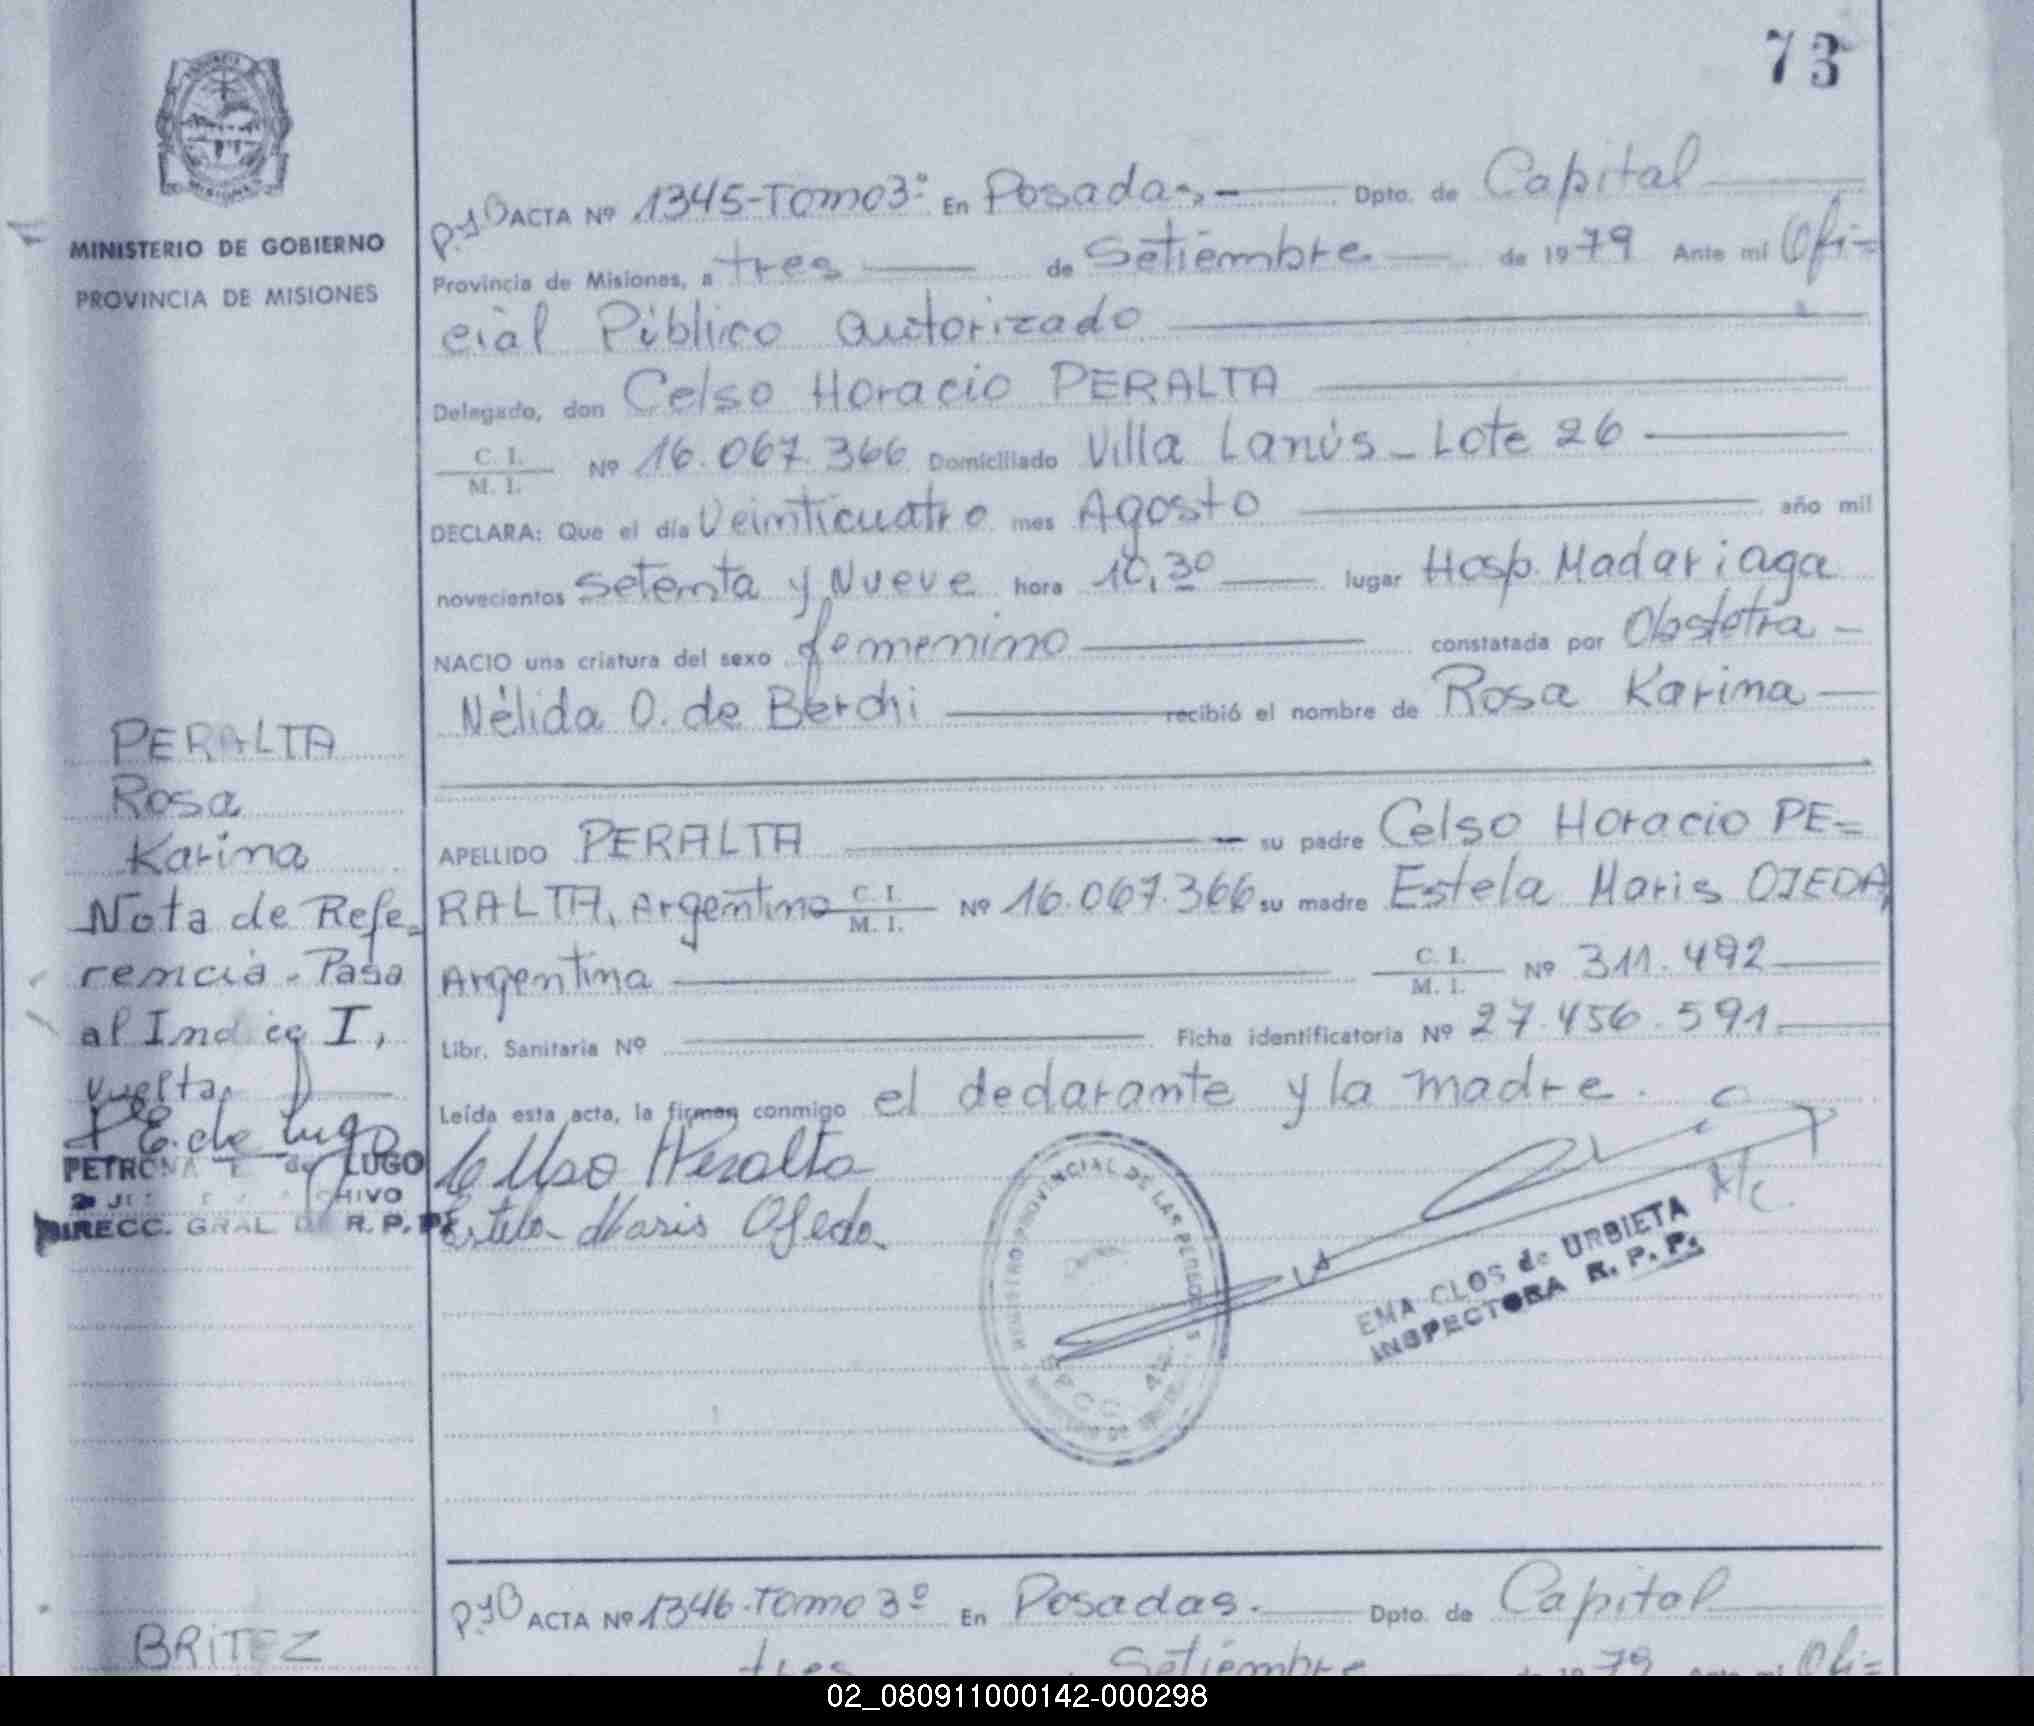 73
MINISTERIO DE GOBIERNO
PROVINCIA DE MISIONES
P.y D ACTA Nº 1345-Tomo 3º En Posadas.- Dpto. de Capital
Provincia de Misiones, a tres de Setiembre de 1979 Ante mi Ofi=
cial Público autorizado
Delegado, don Celso Horacio PERALTA
C. I. / M. I. Nº 16.067.366 Domiciliado Villa Lanús - Lote 26
DECLARA: Que el día Veinticuatro mes Agosto año mil
novecientos Setenta y Nueve hora 10,30 lugar Hosp. Madariaga
NACIO una criatura del sexo femenino constatada por Obstetra -
Nélida O. de Berchi recibió el nombre de Rosa Karina
APELLIDO PERALTA su padre Celso Horacio PE=
RALTA, Argentino C. I. / M. I. Nº 16.067.366 su madre Estela Maris OJEDA,
Argentina C. I. / M. I. Nº 311.492
Libr. Sanitaria Nº Ficha identificatoria Nº 27.456.591
Leída esta acta, la firman conmigo el declarante y la madre.
Celso H Peralta
Estela Maris Ojeda
PERALTA
Rosa
Karina
Nota de Refe=
rencia. Pasa
al Indice I,
vuelta.
P E. de Lugo
PETRONA E de LUGO
ARCHIVO
DIRECC. GRAL DE R. P. P.
REGISTRO PROVINCIAL DE LAS PERSONAS
EMA CLOS de URBIETA
INSPECTORA R. P. P.
P.y D ACTA Nº 1346-Tomo 3º En Posadas.- Dpto. de Capital
tres Setiembre de 1979 Ante mi Ofi=
BRITEZ
02_080911000142-000298